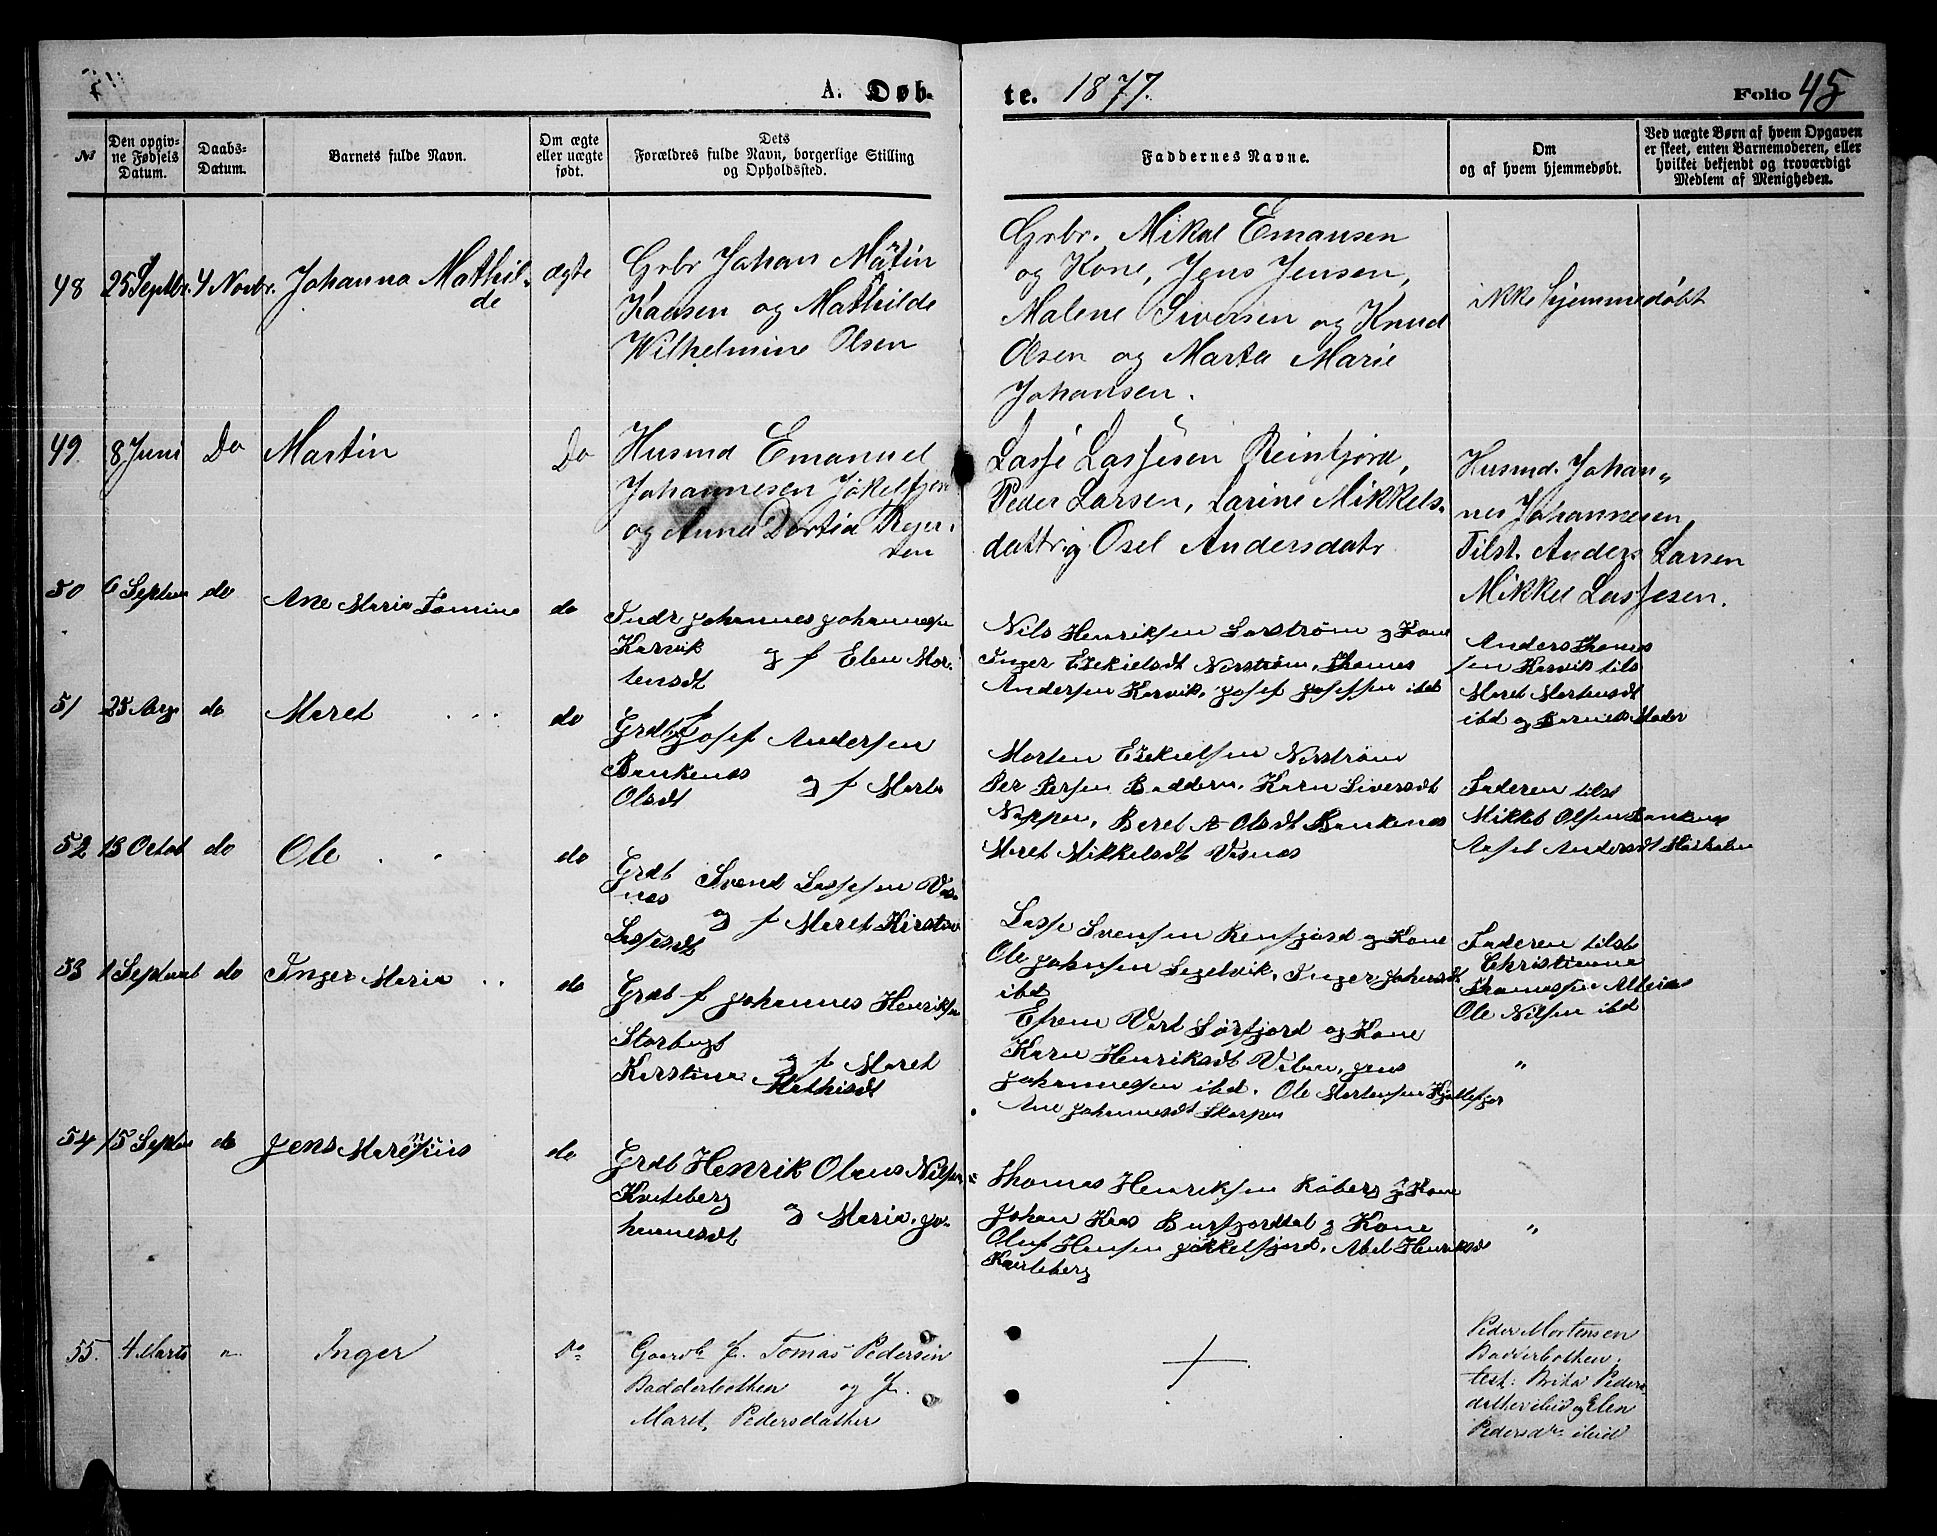 A. Døb-
te. 1877.
Folio 45
№
Den opgiv-
ne Fødsels
Datum.
Daabs-
Datum.
Barnets fulde Navn.
Om ægte
eller uægte
født.
Dets
Forældres fulde Navn, borgerlige Stilling
og Opholdssted.
Faddernes Navne.
Om
og af hvem hjemmedøbt.
Ved uægte Børn af hvem Opgaven
er skeet, enten Barnemoderen, eller
hvilket bekjendt og troværdigt
Medlem af Menigheden.
48
25 Septbr.
4 Novbr.
Johanna Mathil-
de
ægte
Grbr Johan Martin
Kaasen og Mathilde
Wilhelmine Olsen
Grbr. Mikal Emausen
og Kone, Jens Jensen,
Malene Siversen og Knud
Olsen og Marta Marie
Johansen.
ikke hjemmedøbt
49
8 Juni
Do
Martin
Do
Husmd Emanuel
Johannesen Jøkelfjord
og Anna Dortia
Lasse Lassesen Reinfjord,
Peder Larsen, Larine Mikkels-
datt og Osel Andersdatr
Husmd. Johan„
nes Johannesen,
Tilst. Anders Larsen
Mikkel Lassesen.
50
6 Septem
do
Ane Maria Tomine
do
Indr Johannes Johannessen
Karvik og f Elen Mor-
tensdt
Nils Henriksen Sorstrøm og Kone
Inger Ezekielsdt Norstrøm, Thomas
Andersen Karvik, Josef Josefsen ibd
Anders Thomas
sen Karvik tils
Maret Mortensdt
ibd og Barnets Moder
51
25 Aug
do
Maret
do
Grdb f Josef Andersen
Bankenæs og f Marta
Olsdt
Morten Ezekielsen Norstrøm
Per Persen Baddern, Karn Siversdt
Noppen, Beret A Olsdt Bankenæs
Maret Mikkelsdt Vasnæs
Faderen tilst
Mikkel Olsen Bankenæs
52
13 Octob
do
Ole
do
Grdb Svend Lassesen Vas-
næs og f Maret Kirstine
Lassesdt
Lasse Svensen Renfjord og Kone
Ole Johnsen Segelvik, Inger Johnsdt
ibd
Faderen tilst
Christianna
Thomassen
Ole Nilsen ibd
53
1 Septemb
do
Inger Maria
do
Grdb f Johannes Henriksen
Storbugt og f Maret
Kirstina Mathisdt
Efrem Vart Sørfjord og Kone
Karn Henriksdt Viben, Jens
Johannessen ibd. Ole Mortensen
Ane Johannesdt Skorpen
„
54
15 Septem
do
Jens Marenius
do
Grdb Henrik Olaus Nilsen
Kviteberg og Maria Jo-
hannesdt
Thomas Henriksen Roberg og Kone
Johan Kaas Burfjordtal og Kone
Oluf Hansen Jøkkelfjord, Abel Henriksdt
Kviteberg
„
55.
4 Marts
„
Inger
Do
Gaardb f. Tomas Pedersen
Badderbotten og f.
Maret Pedersdatter
Peder Mortensen
Badderbotten,
test: Brita Peders-
datter ibid og Elen
Pedersdtr ibid